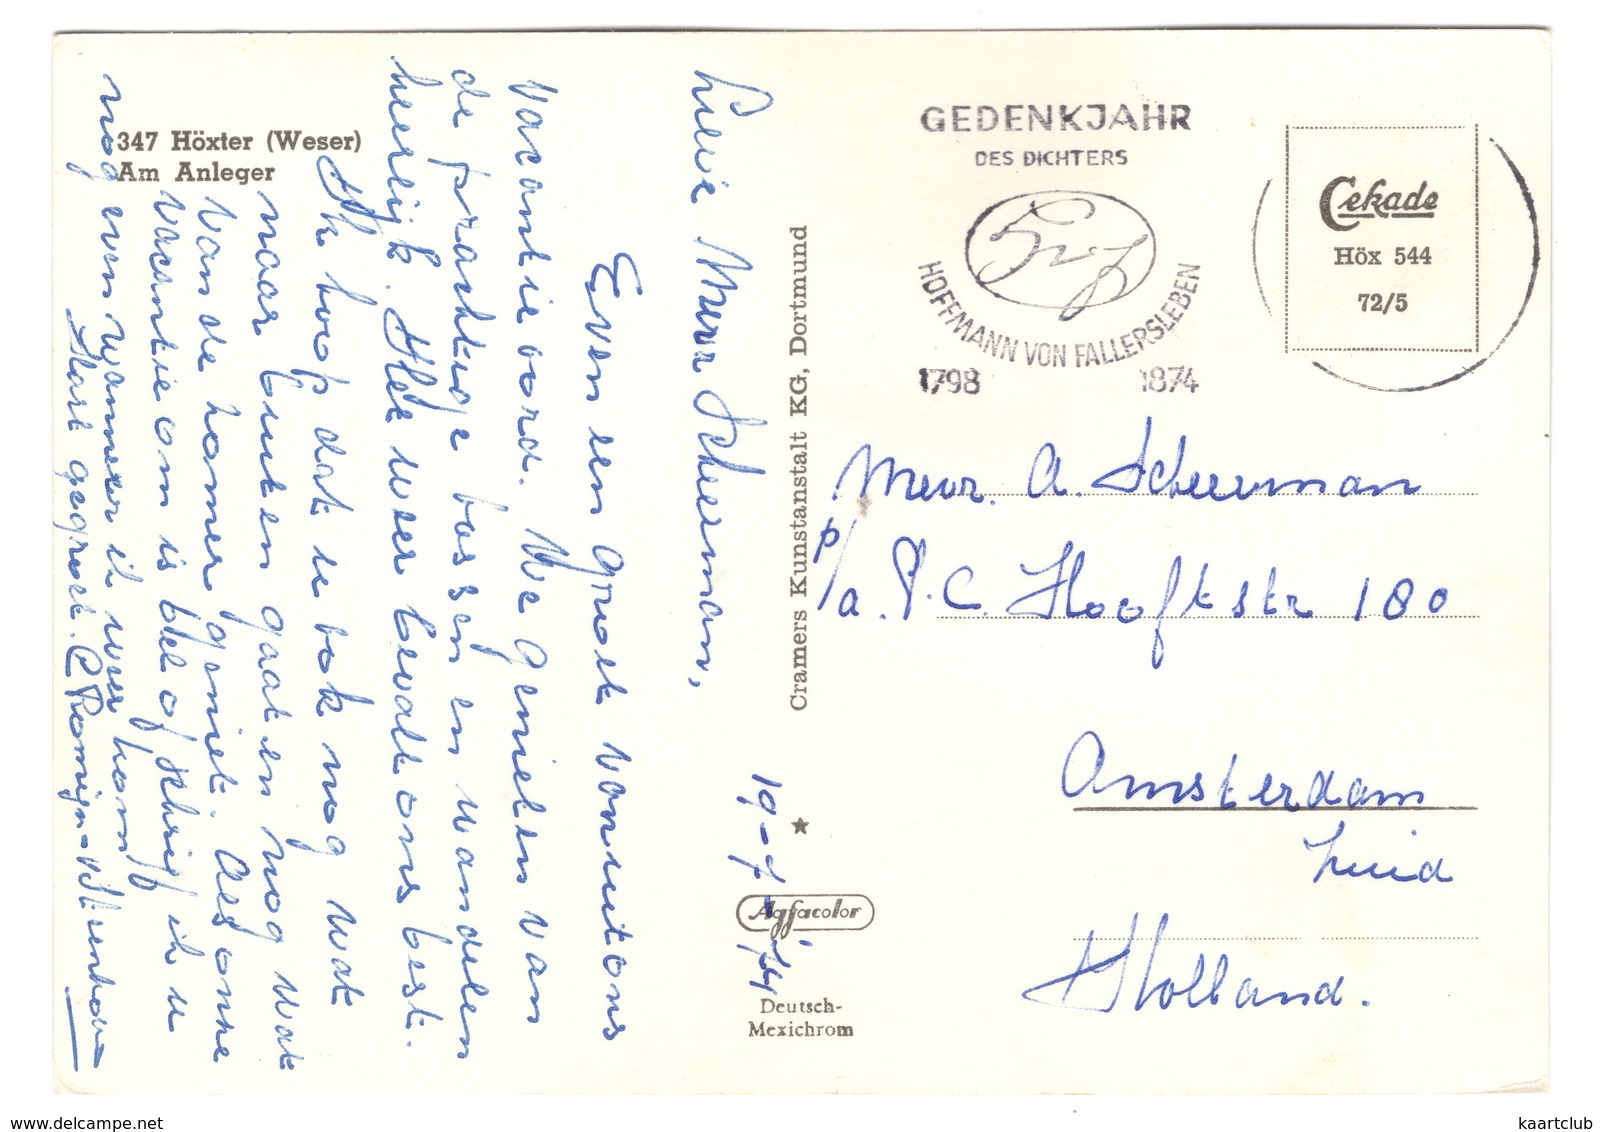 347 Höxter (Weser)
Am Anleger
19-7-'74
Lieve Mevr Scheerman,
Even een groet van uit ons
vacantieoord. We genieten van
de prachtige bossen en wandelen
heerlijk. Het weer bevalt ons best.
Ik hoop dat u ook nog wat
naar buiten gaat en nog wat
van de zomer geniet. Als onze
vacantie om is bel of schrijf ik u
nog even wanneer ik weer kom
Hart. gegroet. C Romijn-
Cramers Kunstanstalt KG, Dortmund
Agfacolor
Deutsch-
Mexichrom
GEDENKJAHR
DES DICHTERS
HOFFMANN VON FALLERSLEBEN
1798 1874
Cekade
Höx 544
72/5
Mevr. A. Scheerman
p/a. P.C. Hooftstr 180
Amsterdam
Zuid
Holland.
www.delcampe.net
kaartclub